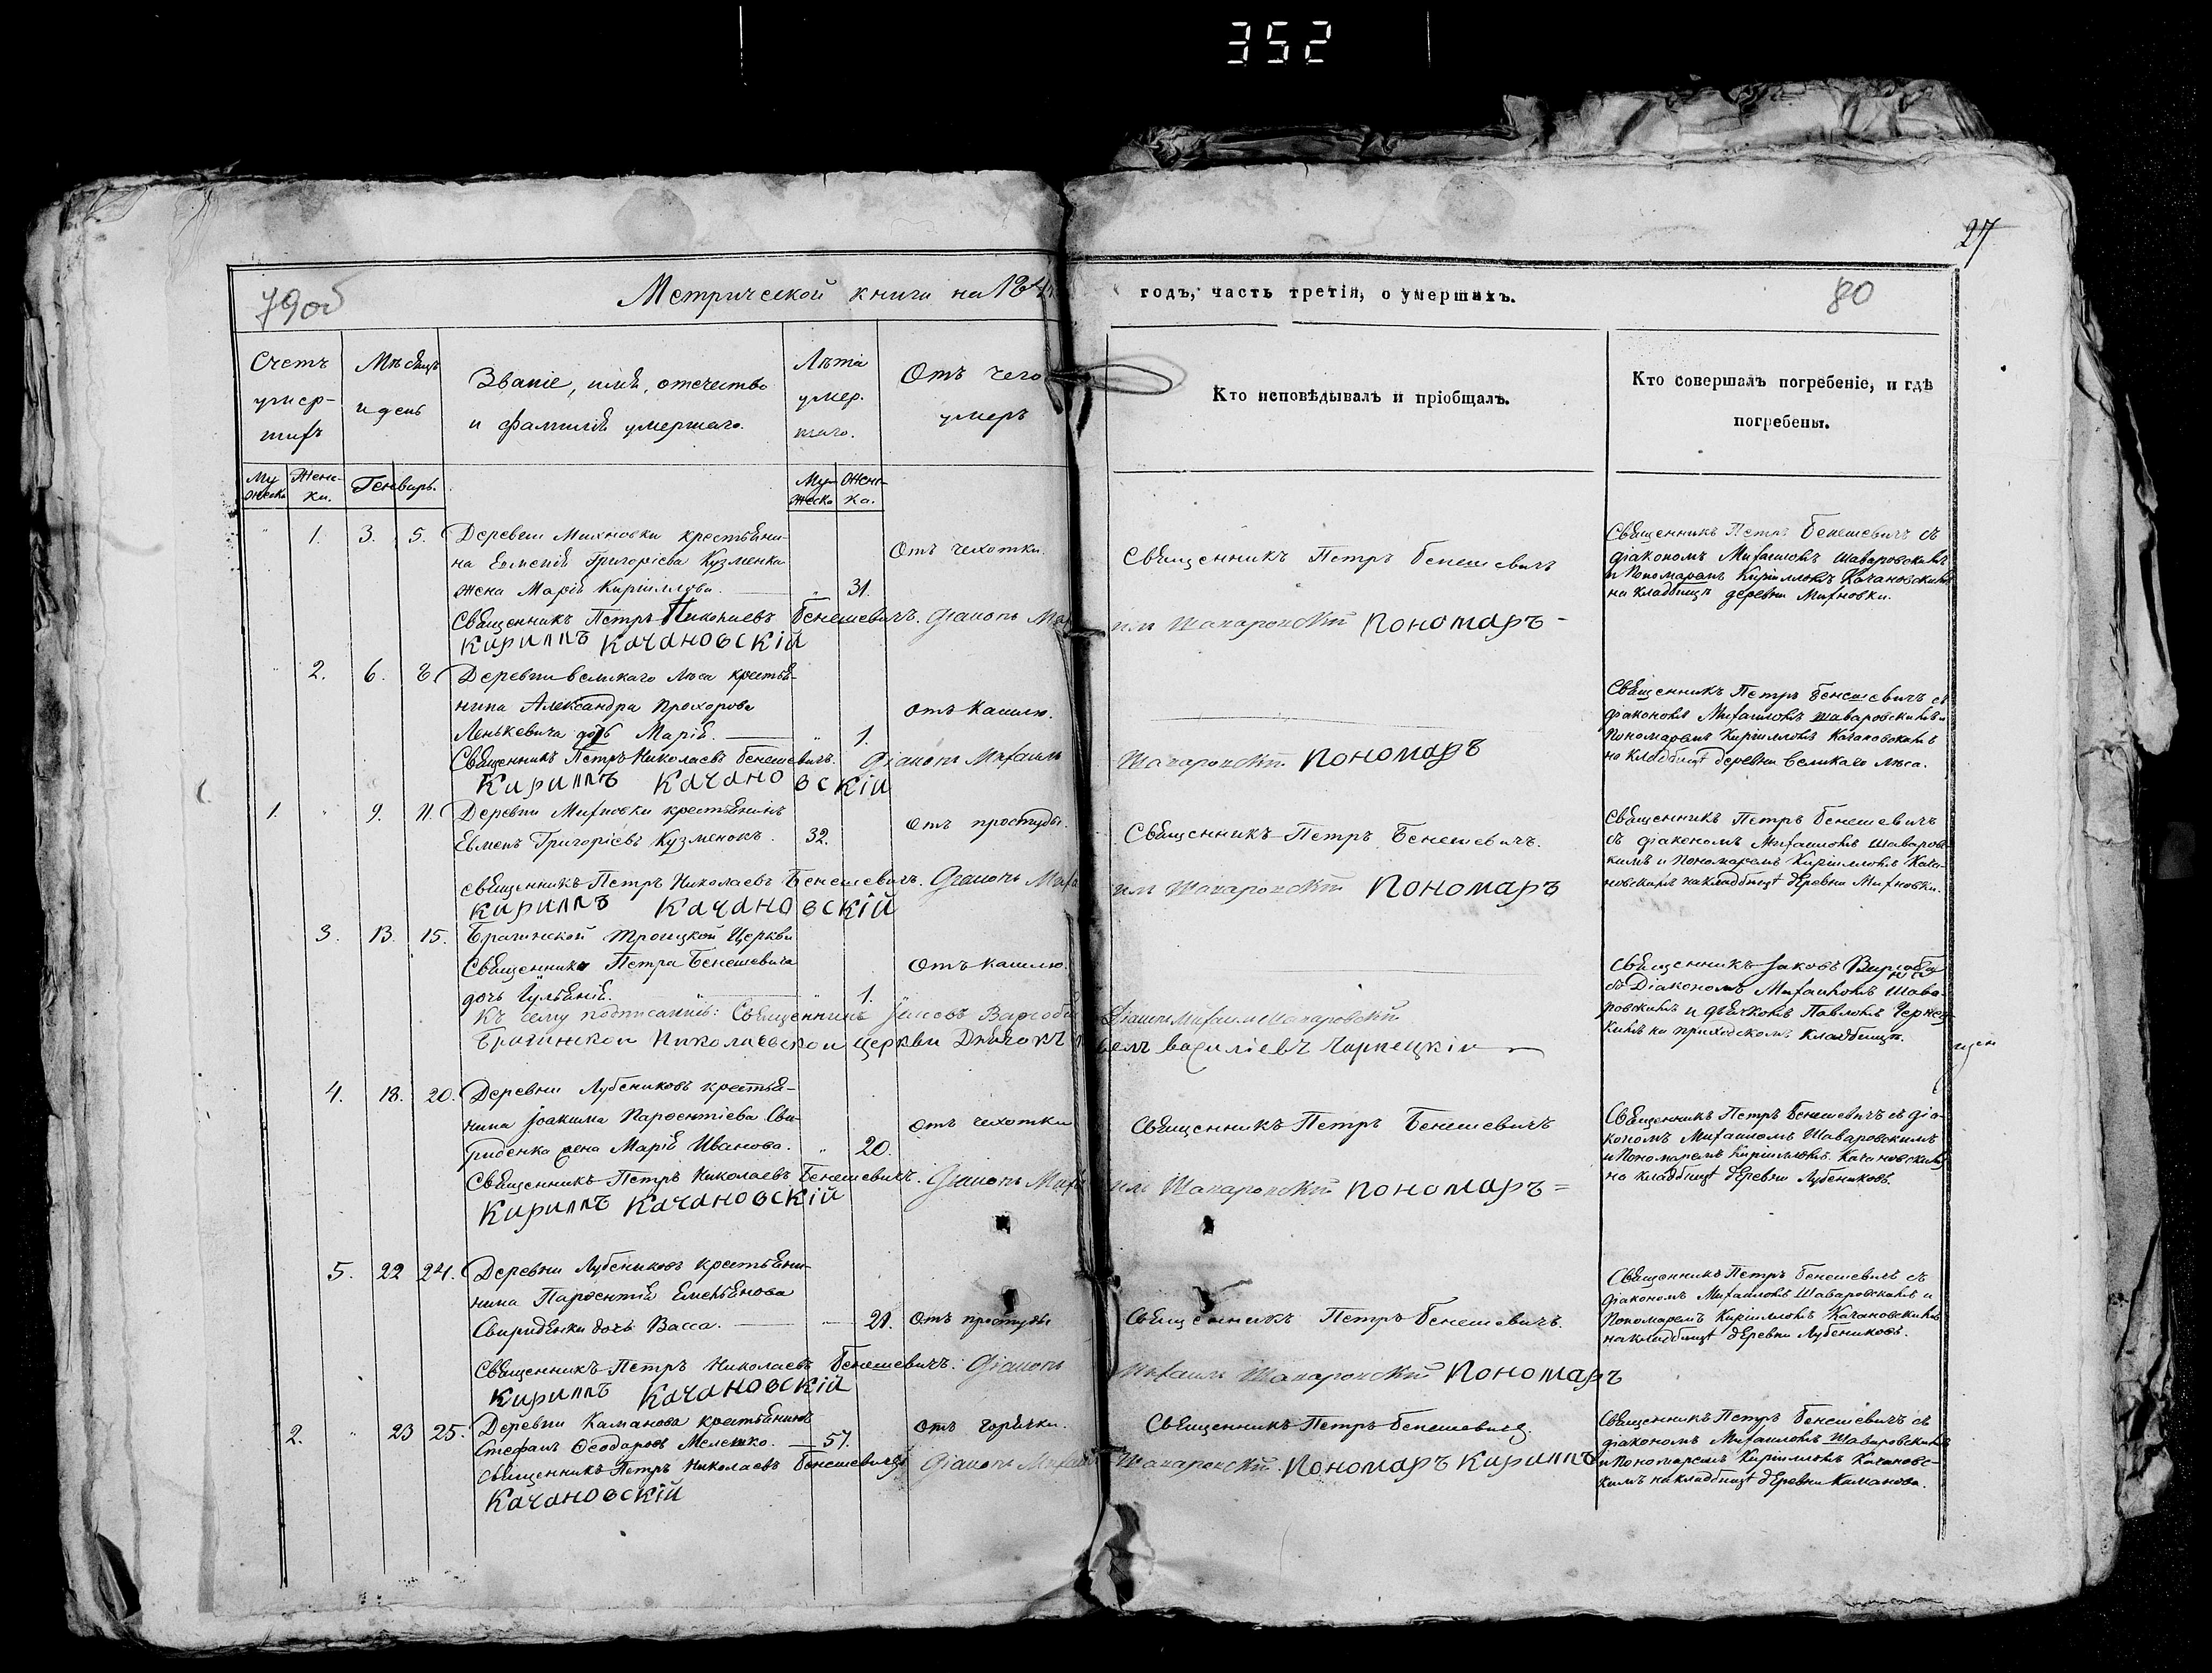 352
27
79об
Метрической книги на 184
годъ, часть третія, о умершихъ.
80
Счетъ умер-шихъ
Мѣсяцъ и день
Званіе, имя, отечество и фамилія умершаго.
Лѣта умер. шаго.
Отъ чего умеръ
Кто исповѣдывалъ и пріобщалъ.
Кто совершалъ погребеніе, и гдѣ погребены.
Му жеска
Женс-ка.
Генварь.
Му-жеска
Женс-ка.
1. 3. 5. Деревни Михновки крестьяни-
на Евменія Григорієва Кузменка
жена Марія Кириллова. 31.
Отъ чехотки.
Священникъ Петръ Бенешевичъ
Священникъ Петръ Бенешевичъ съ
діакономъ Михаиломъ Шаваровскимъ
и Пономаремъ Кирилломъ Качановскимъ
на кладбищѣ деревни Михновки.
Священникъ Петръ Николаевъ Бенешевичъ. Діаконъ Миха
илъ Шаваровскій Пономаръ-
Кириллъ Качановскій
2. 6. 8. Деревни Великаго Лѣса крестья-
нина Александра Прохорова
Ленькевича дочь Марія. 1.
отъ кашлю.
Священникъ Петръ Бенешевичъ съ
діакономъ Михаиломъ Шаваровскимъ и
Пономаремъ Кирилломъ Качановскимъ
на кладбищѣ деревни Великаго Лѣса.
Священникъ Петръ Николаевъ Бенешевичъ. Діаконъ Михаилъ
Шаваровскій Пономаръ
Кириллъ Качановскій
1. 9. 11. Деревни Михновки крестьянинъ
Евменъ Григорієвъ Кузменокъ. 32.
отъ простуды.
Священникъ Петръ Бенешевичъ.
Священникъ Петръ Бенешевичъ
съ діакономъ Михаиломъ Шаваровс-
кимъ и Пономаремъ Кирилломъ Кача-
новскимъ на кладбищѣ деревни Михновки.
священникъ Петръ Николаевъ Бенешевичъ. Діаконъ Миха
илъ Шаваровскій Пономаръ
Кириллъ Качановскій
3. 13. 15. Брагинской Троицкой Церкви
Священника Петра Бенешевича
дочь Іуліанія. 1.
Отъ кашлю.
Священникъ Іаковъ
съ Діакономъ Михаиломъ Шава-
ровскимъ и дьячкомъ Павломъ Чернец-
кимъ на приходскомъ кладбищѣ.
Къ сему подписались: Священникъ Іаковъ
Діаконъ Михаилъ Шаваровскій
Брагинской Николаевской церкви Дьячокъ
Василіевъ Чарнецкій
4. 18. 20. Деревни Лубениковъ крестья-
нина Іоакима Парѳентіева Сви-
риденка жена Марія Иванова. 20.
отъ чехотки
Священникъ Петръ Бенешевичъ
Священникъ Петръ Бенешевичъ съ діа-
кономъ Михаиломъ Шаваровскимъ
и Пономаремъ Кирилломъ Качановскимъ
на кладбищѣ деревни Лубениковъ.
Священникъ Петръ Николаевъ Бенешевичъ. Діаконъ Миха
илъ Шаваровскій Пономаръ=
Кириллъ Качановскій
5. 22 24. Деревни Лубениковъ крестьяни-
нина Парѳентія Емельянова
Свириденки дочь Васса. 21.
Отъ простуды
Священникъ Петръ Бенешевичъ.
Священникъ Петръ Бенешевичъ съ
діакономъ Михаиломъ Шаваровскимъ и
Пономаремъ Кирилломъ Качановскимъ
на кладбищѣ деревни Лубениковъ.
Священникъ Петръ Николаевъ Бенешевичъ. Діаконъ
Михаилъ Шаваровскій Пономаръ
Кириллъ Качановскій
2. 23 25. Деревни Каманова крестьянинъ
Стефанъ Ѳеодоровъ Мелешко. 57.
отъ горячки.
Священникъ Петръ Бенешевичъ.
Священникъ Петръ Бенешевичъ съ
діакономъ Михаиломъ Шаваровскимъ
и Пономаремъ Кирилломъ Качановс-
кимъ на кладбищѣ деревни Каманова.
священникъ Петръ Николаевъ Бенешевичъ Діаконъ Михаилъ
Шаваровскій. Пономаръ Кириллъ
Качановскій